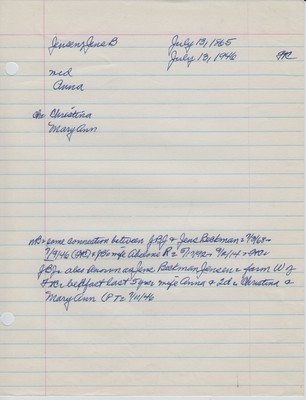 Jensen, Jens B July 13, 1865
July 13, 1946 FTC
md
Anna
ch. Christina
Mary Ann
NB = some connection between JBJ & Jens Beckman = 7/13/65 -
wife Abelone R =
JBJ = also known as Jens Beckman Jensen = farm W of
FTC = bedfast last 5 yrs = wife Anna & 2d = Christina &
Mary Ann (PT = 7/11/46